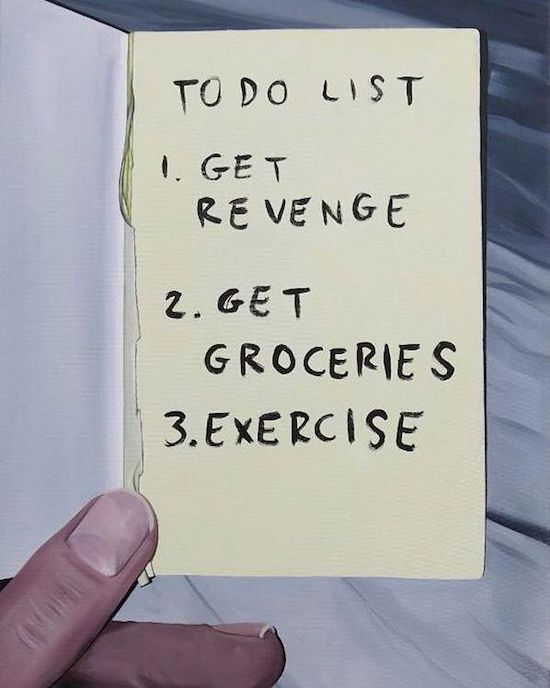 TO DO LIST
1. GET
REVENGE
2. GET
GROCERIES
3. EXERCISE